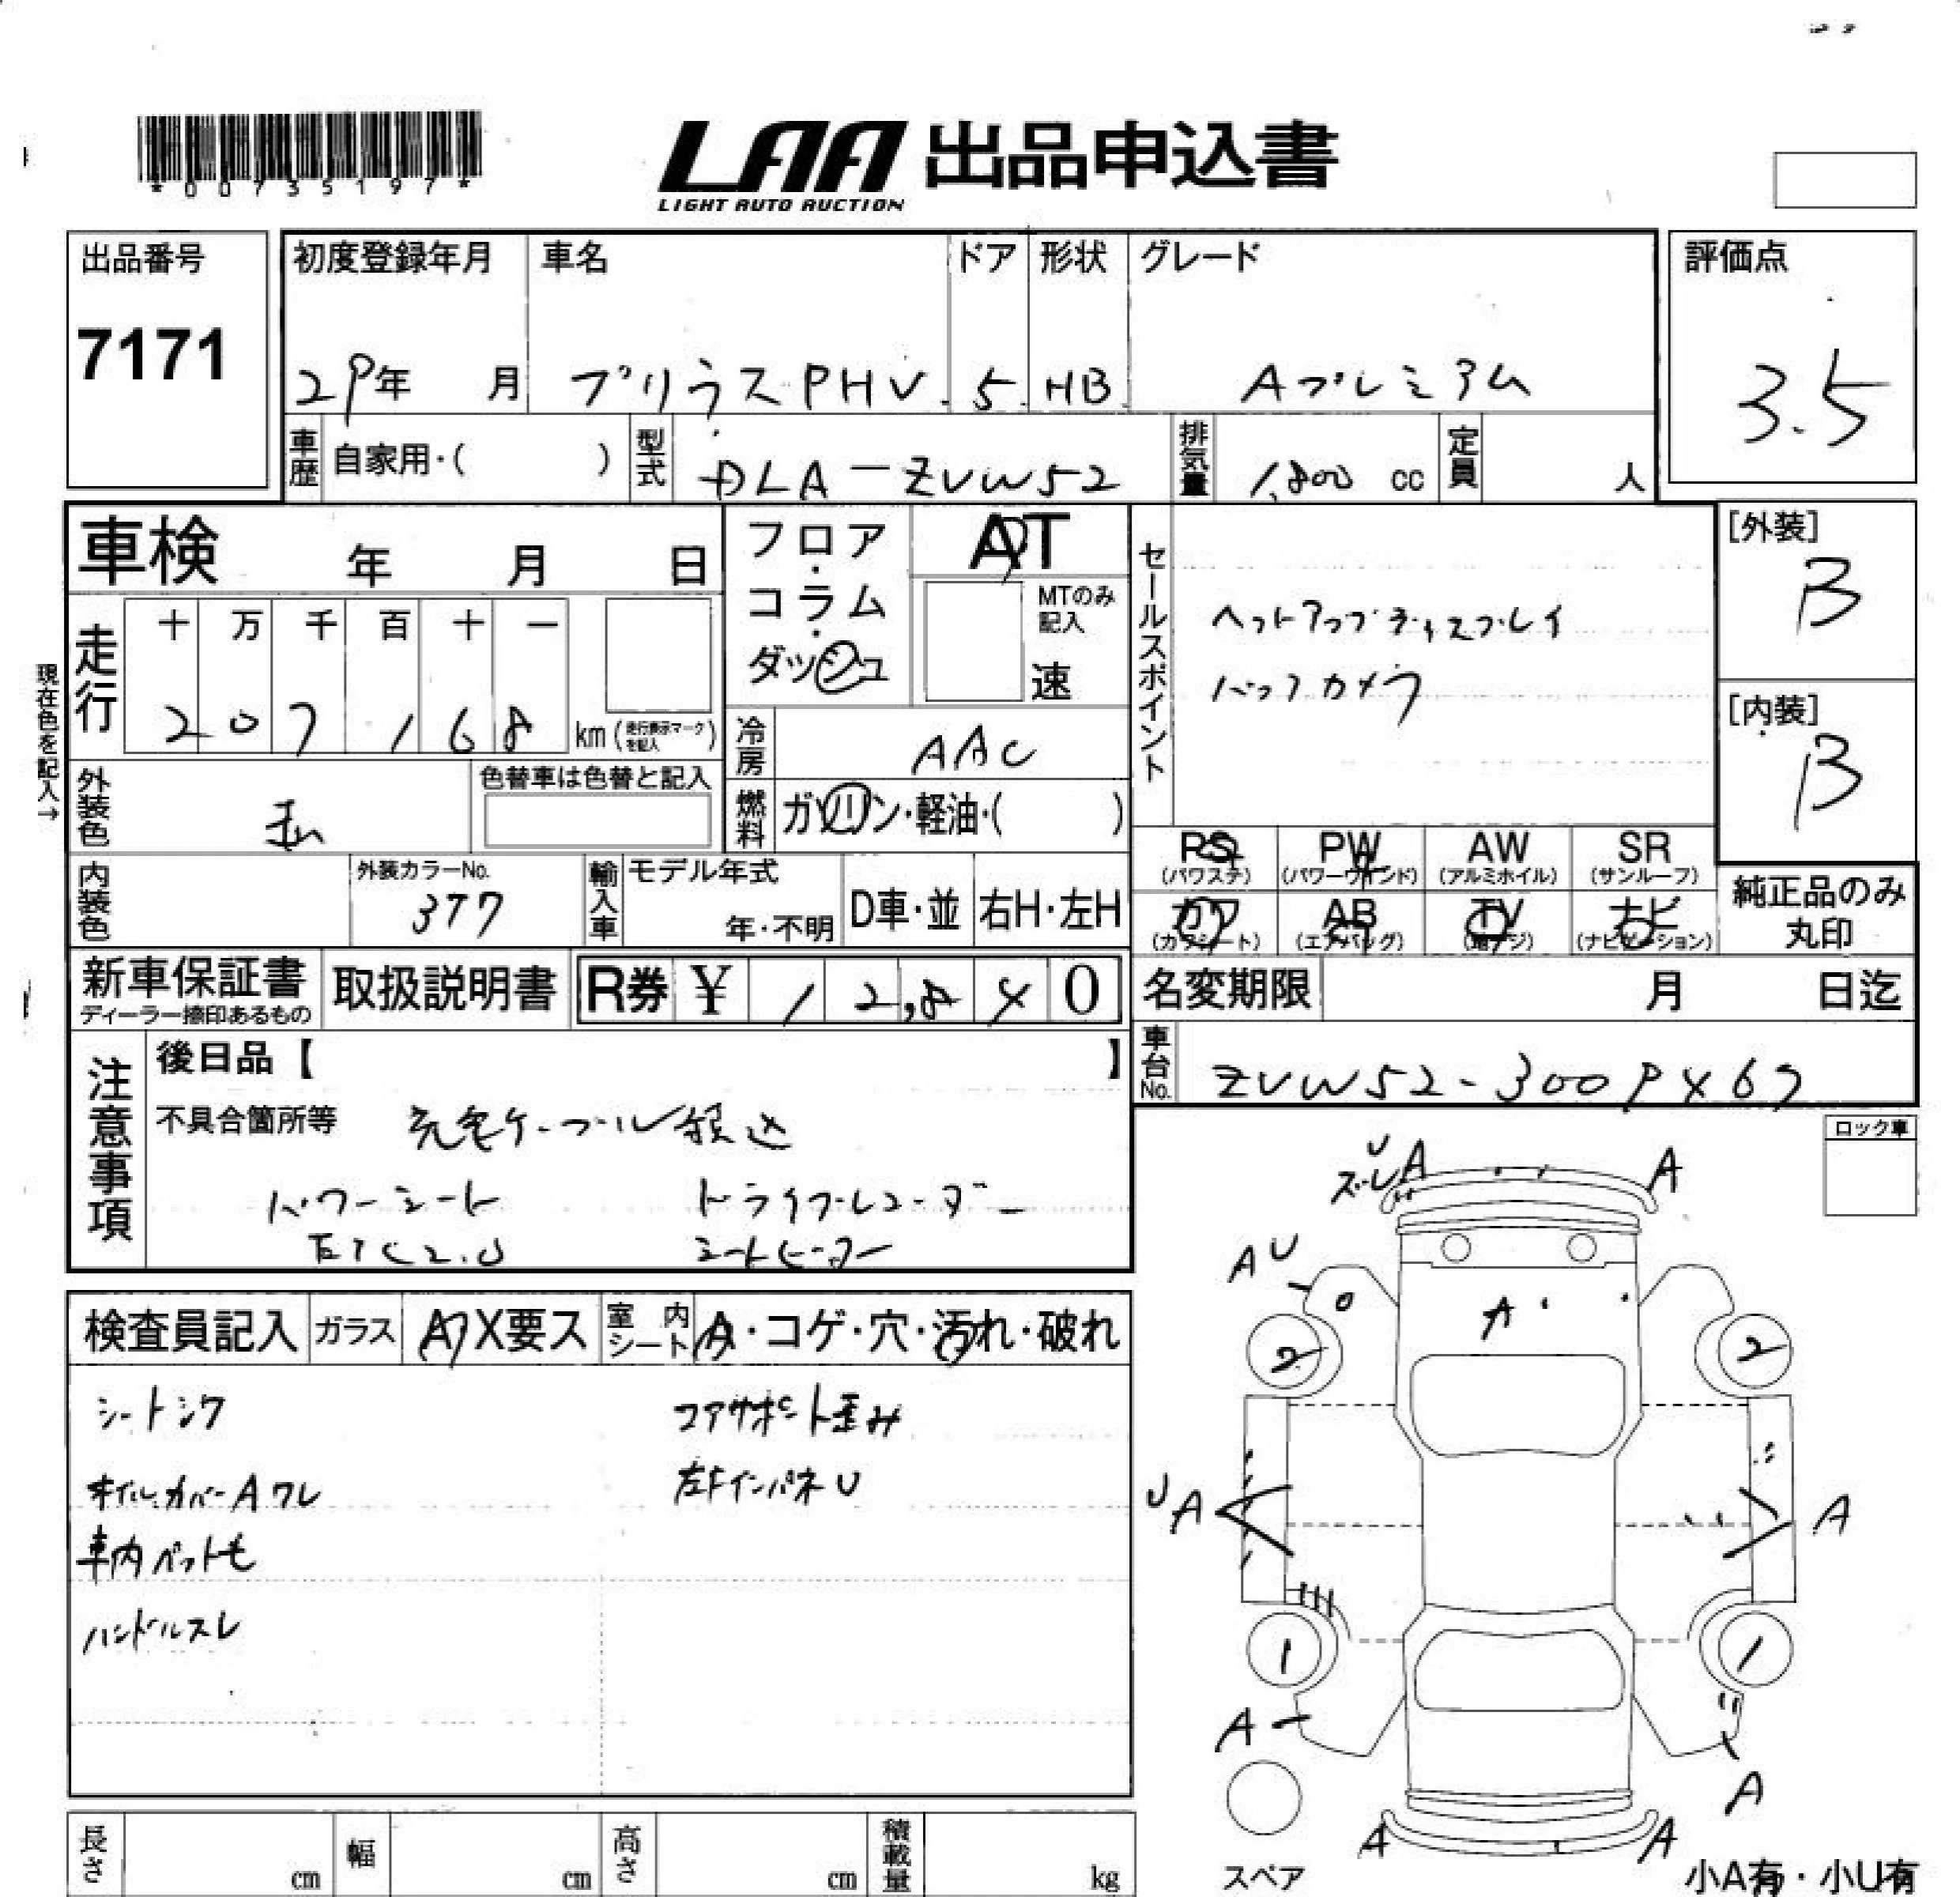 *00735197*
LAA 出品申込書
LIGHT AUTO AUCTION
出品番号
7171
初度登録年月
29年 月
車名
プリウスPHV
ドア
5
形状
HB
グレード
Aプレミアム
評価点
3.5
車歴 自家用・( )
型式 DLA-ZVW52
排気量 1,800 cc
定員 人
車検 年 月 日
走行
十 万 千 百 十 一
2 0 7 1 6 8 km (走行表示マークを記入)
現在色を記入→
外装色
色替車は色替と記入
内装色
外装カラーNo.
377
フロア・コラム・ダッシュ
AT
MTのみ記入
速
冷房 AAC
燃料 ガソリン・軽油・( )
輸入車
モデル年式
年・不明
D車・並
右H・左H
セールスポイント
ヘットアップディスプレイ
バックカメラ
[外装]
B
[内装]
B
PS (パワステ)
PW (パワーウィンド)
AW (アルミホイル)
SR (サンルーフ)
カワ (カワシート)
AB (エアバッグ)
TV (地デジ)
ナビ (ナビゲーション)
純正品のみ丸印
新車保証書
ディーラー捺印あるもの
取扱説明書
R券 ¥ 1 2,8 0
名変期限 月 日迄
車台No. ZVW52-300
注意事項
後日品【 】
不具合箇所等 充電ケーブル積込
パワーシート ドライブレコーダー
ETC2.0 シートヒーター
検査員記入
ガラス A X要ス
室内シート A・コゲ・穴・汚れ・破れ
シートシワ
コアサポート歪み
オイルカバーAワレ
左Fインパネ U
車内ペット毛
ハンドルスレ
ロック車
U
ズレ A
A
A U
A
2
2
U A
A
1
1
A
A
A
A
スペア
小A有・小U有
長さ cm
幅 cm
高さ cm
積載量 kg